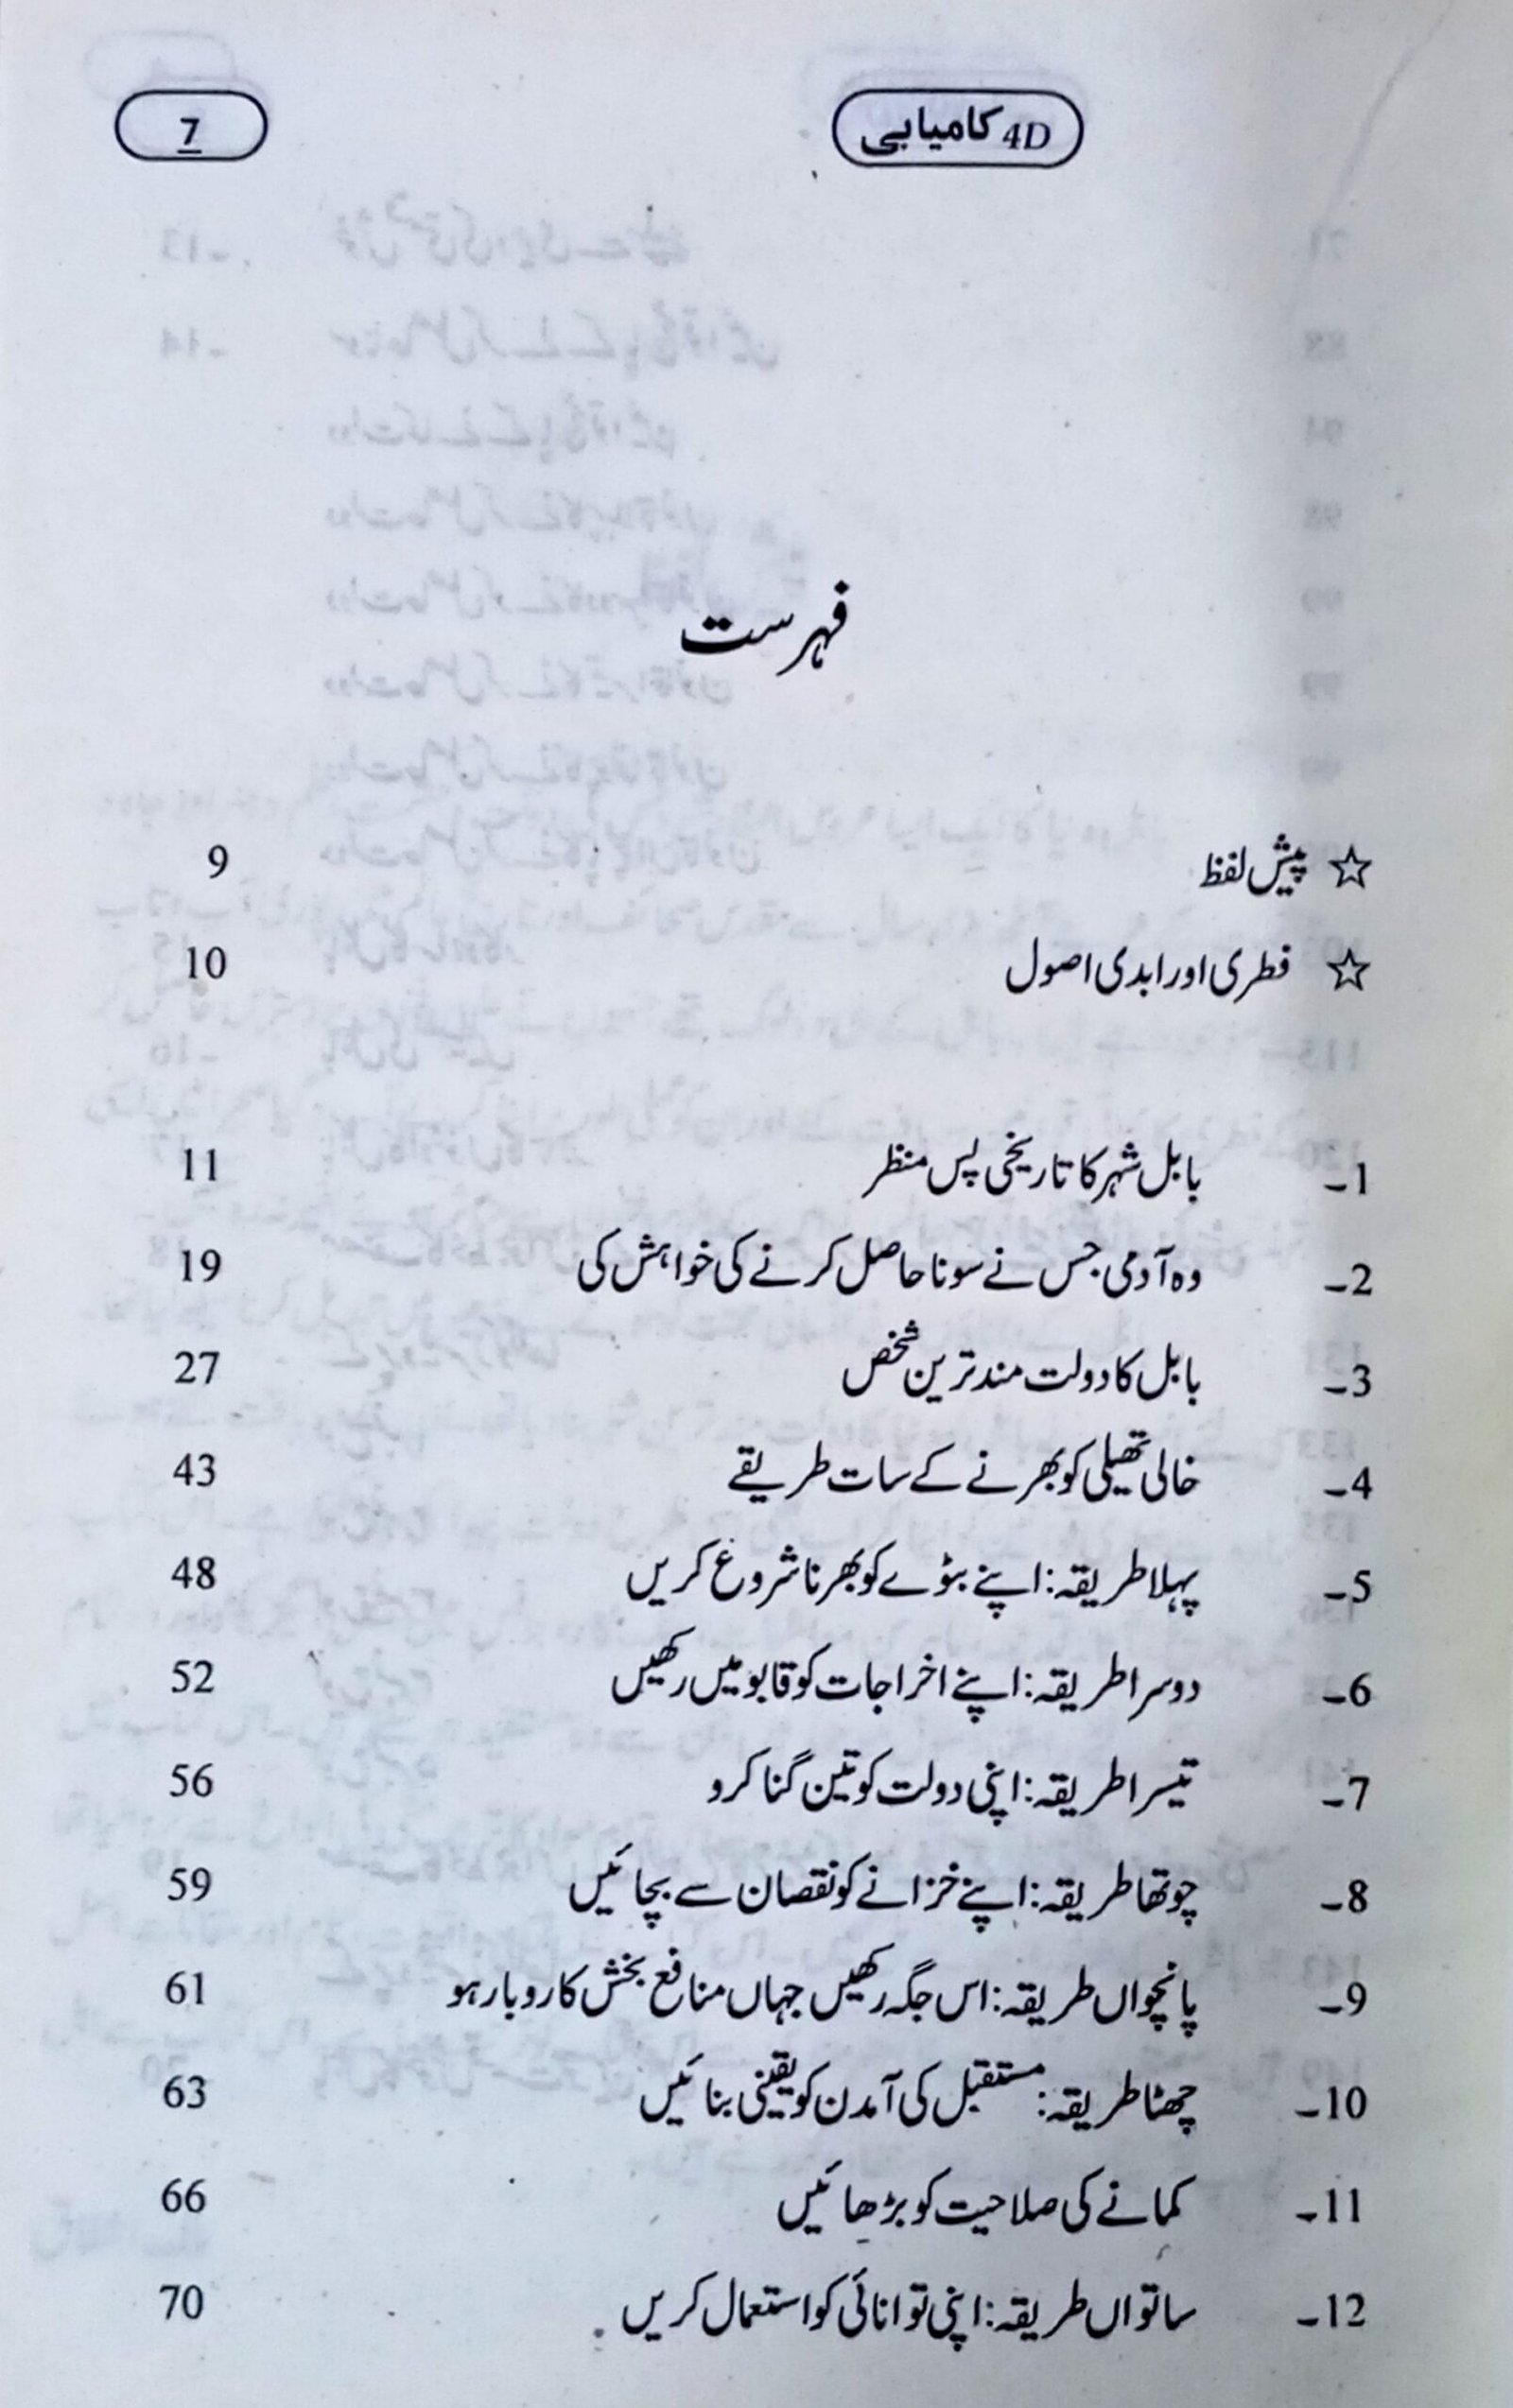 4D کامیابی 7
فہرست
☆ پیش لفظ 9
☆ فطری اور ابدی اصول 10
1۔ بابل شہر کا تاریخی پس منظر 11
2۔ وہ آدمی جس نے سونا حاصل کرنے کی خواہش کی 19
3۔ بابل کا دولت مند ترین شخص 27
4۔ خالی تھیلی کو بھرنے کے سات طریقے 43
5۔ پہلا طریقہ: اپنے بٹوے کو بھرنا شروع کریں 48
6۔ دوسرا طریقہ: اپنے اخراجات کو قابو میں رکھیں 52
7۔ تیسرا طریقہ: اپنی دولت کو تین گنا کرو 56
8۔ چوتھا طریقہ: اپنے خزانے کو نقصان سے بچائیں 59
9۔ پانچواں طریقہ: اس جگہ رکھیں جہاں منافع بخش کاروبار ہو 61
10۔ چھٹا طریقہ: مستقبل کی آمدن کو یقینی بنائیں 63
11۔ کمانے کی صلاحیت کو بڑھائیں 66
12۔ ساتواں طریقہ: اپنی توانائی کو استعمال کریں 70